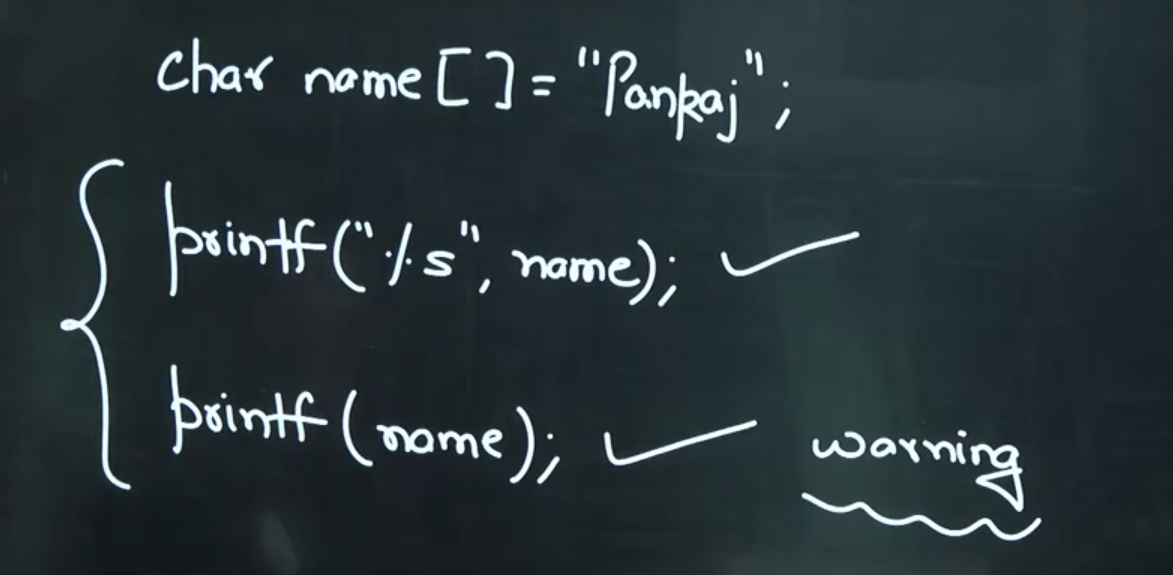 char name[] = "Pankaj";
printf("%s", name);
printf(name);
warning